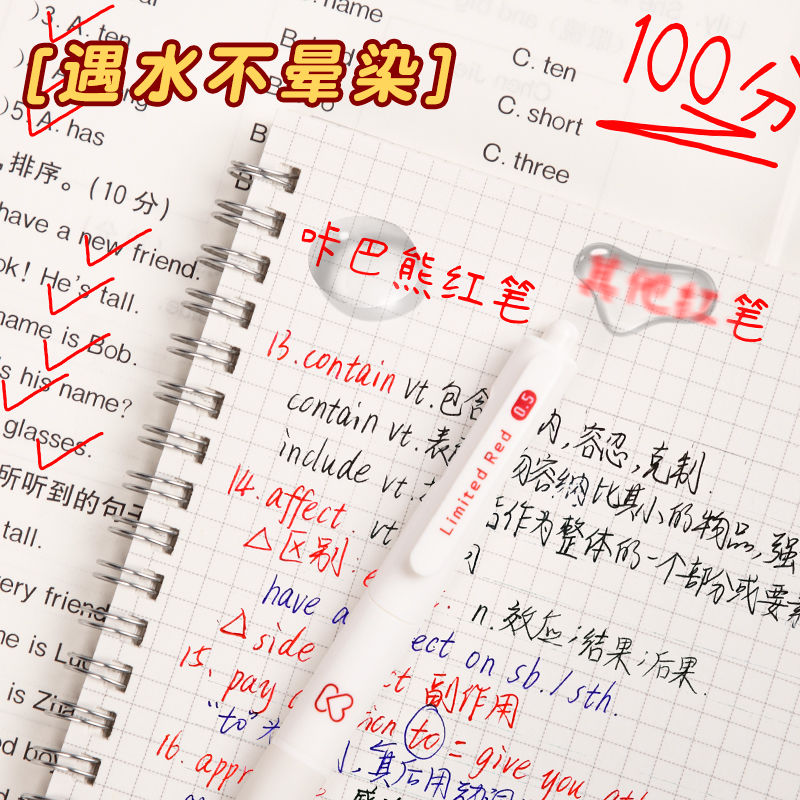 [遇水不晕染]
100分
3. A. ten
5. A. has
C. ten
C. short
C. three
排序。(10 分)
have a new friend.
ok! He's tall.
name is Bob.
s his name?
glasses.
所听到的句子
tall.
ery friend
ne is Lu
is Zh
d boy
咔巴熊红笔
其他红笔
Limited Red 0.5
13. contain vt. 包含
内, 容忍, 克制.
contain vt. 表
容纳比其小的物品, 强
include vt.
作为整体的一个部分或要素
14. affect. vt
△区别. e
n. 效应;结果;后果.
have a
ect on sb./sth.
△side
ct 副作用
15. pay
ion to = give you
"to"
其后用动词
16. appr